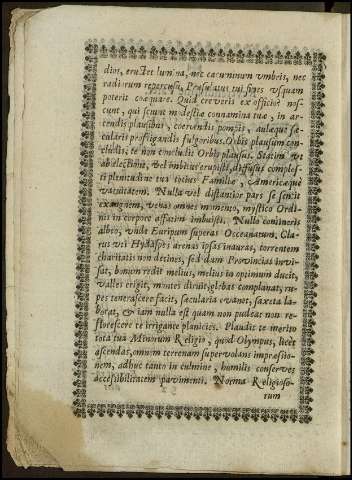 dior, eructet lumina, nec cacuminum umbris, nec
radiorum repercusu, Præsulatus tui fines usquam
poterit coæquare. Quid creveris ex officio? nos-
cunt, qui sciunt modestia connamina tua, in ar-
cendis plausibus, coercendis pompis, aulæque sæ-
cularis profligandis fulgoribus. Orbis plausum con-
cludis; te non concludit Orbis plausus. Statim ut
ab electioni, vel imbutus erupisti, diffusus comples-
ti plenitudine tua totius Familiæ, Americæque
vacuitatem. Nulla vel distantior pars se sensit
exanguem, venas omnes munirum, mystico Ordi-
nis in corpore affatim imbuisti. Nullo contineris
alveo, unde Euripum superas Occeanatum, Cla-
rus uti Hydaspes arenas ipsas inauras, torrentem
charitatis non detines, sed dum Provincias invi-
sat, bonum redit melius, melius in optimum ducit,
valles erigit, montes diruit, glebas complanat, ru-
pes tenerascere facit, sæcularia evanet, saxeta la-
borat, & iam nulla est quam non pudeat non re-
florescere te irrigante planicies. Plaudit te merito
tota tua Minorum Religio, quod Olympus, licèt
ascendas, omnem terrenam supervolans impræssio-
nem, adhuc tanto in culmine, humilis conserves
accessibilitatem pavimenti. Norma Religioso-
rum